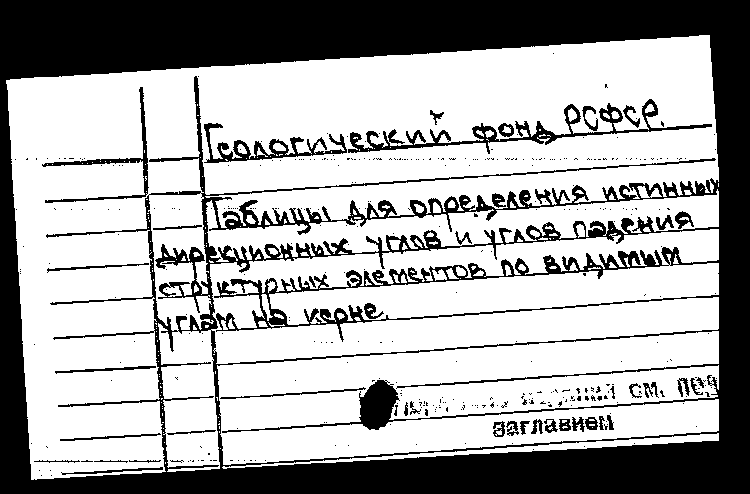 Геологический фонд РСФСР.
Таблицы для определения истинных
дирекционных углов и углов падения
структурных элементов по видимым
углам на керне.
издания см. под
заглавием